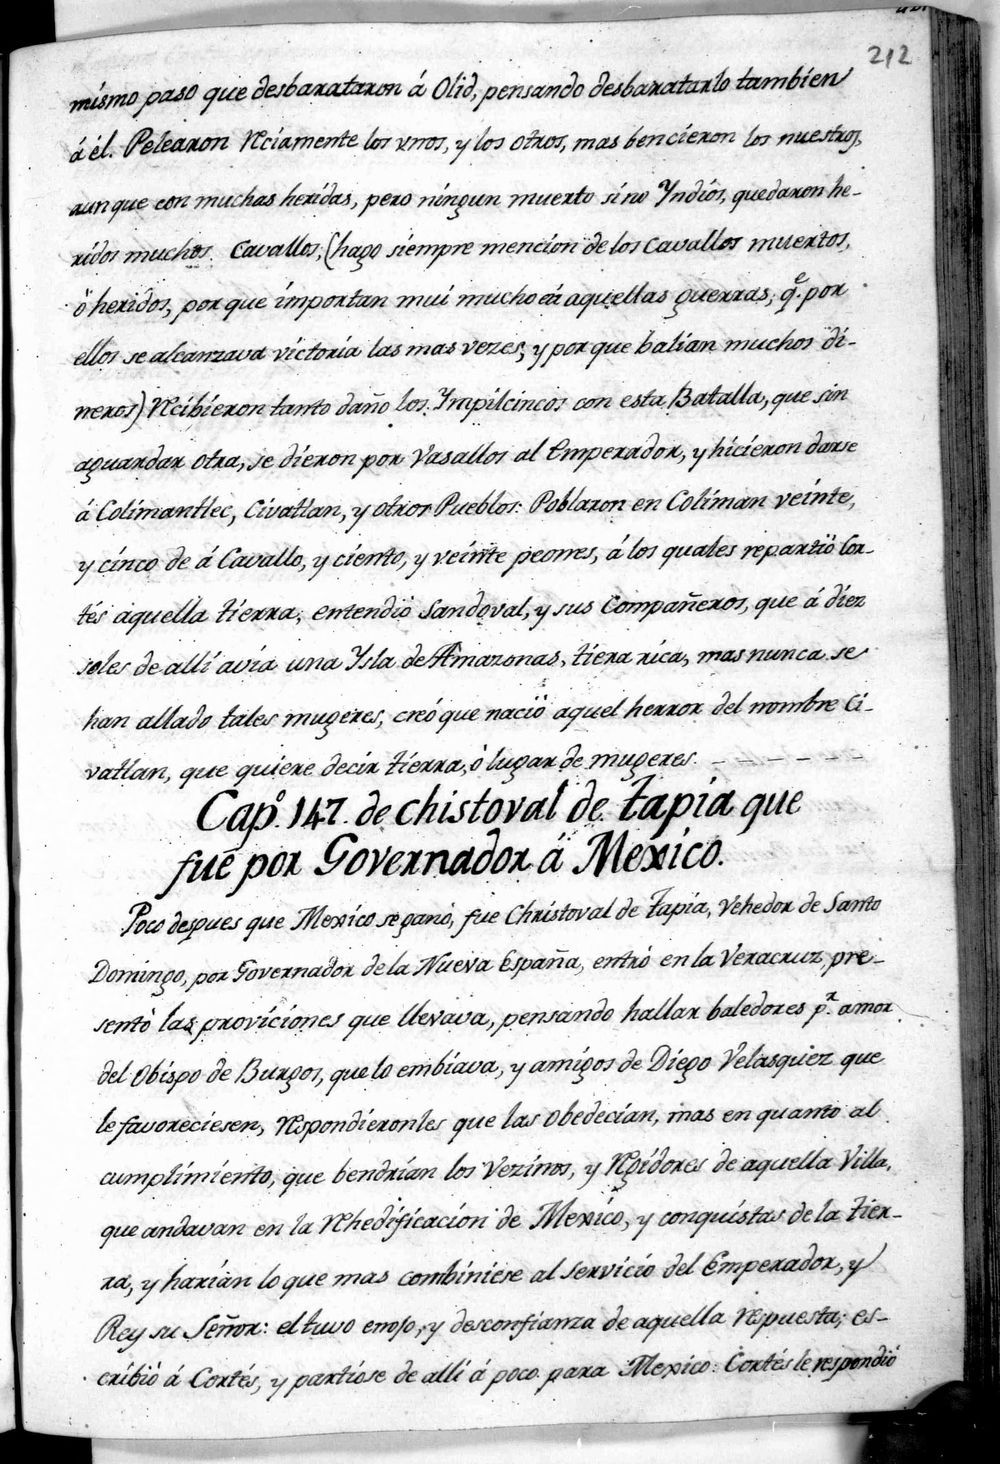 212
mismo paso que desbarataron á Olid, pensando desbaratarlo tambien
á él. Pelearon reciamente los vnos, y los otros, mas bencieron los nuestros,
aunque con muchas heridas, pero ningun muerto sino Yndios, quedaron he-
ridos muchos Cavallos; (hago siempre mencion de los Cavallos muertos,
ö heridos, por que importan mui mucho en aquellas guerras; q.e por
ellos se alcanzava victoria las mas vezes, y por que balian muchos di-
neros) recibieron tanto daño los Ympilcincos con esta Batalla, que sin
aguardar otra, se dieron por Vasallos al Emperador, y hicieron darse
á Colimantlec, Civatlan, y otros Pueblos: Poblaron en Coliman veinte,
y cinco de á Cavallo, y ciento, y veinte peones, á los quales repartiö Cor-
tés aquella tierra; entendiö Sandoval, y sus Compañeros, que á diez
soles de alli avia una Ysla de Amazonas, tiera rica, mas nunca se
han allado tales mugeres, creó que naciö aquel herror del nombre Ci-
vatlan, que quiere decir tierra, ó lugar de mugeres. - - - - - -
Cap.o 147. de Chistoval de Tapia que
fue por Governador á Mexico.
Poco despues que Mexico se ganó, fue Christoval de Tapia, Vehedor de Santo
Domingo, por Governador de la Nueva España, entró en la Veracruz, pre-
sentó las proviciones que llevava, pensando hallar baledores p.r amor
del Obispo de Burgos, que lo embiava, y amigos de Diego Velasquez que
le favoreciesen, respondieronles que las obedecian, mas en quanto al
cumplimiento, que bendrian los Vezinos, y regidores de aquella Villa,
que andavan en la rehedificacion de Mexico, y conquistas de la tier-
ra, y harian lo que mas combiniese al servicio del Emperador, y
Rey su Señor: el tuvo enojo, y desconfianza de aquella respuesta; es-
cribió á Cortés, y partiose de alli á poco para Mexico: Cortés le respondió